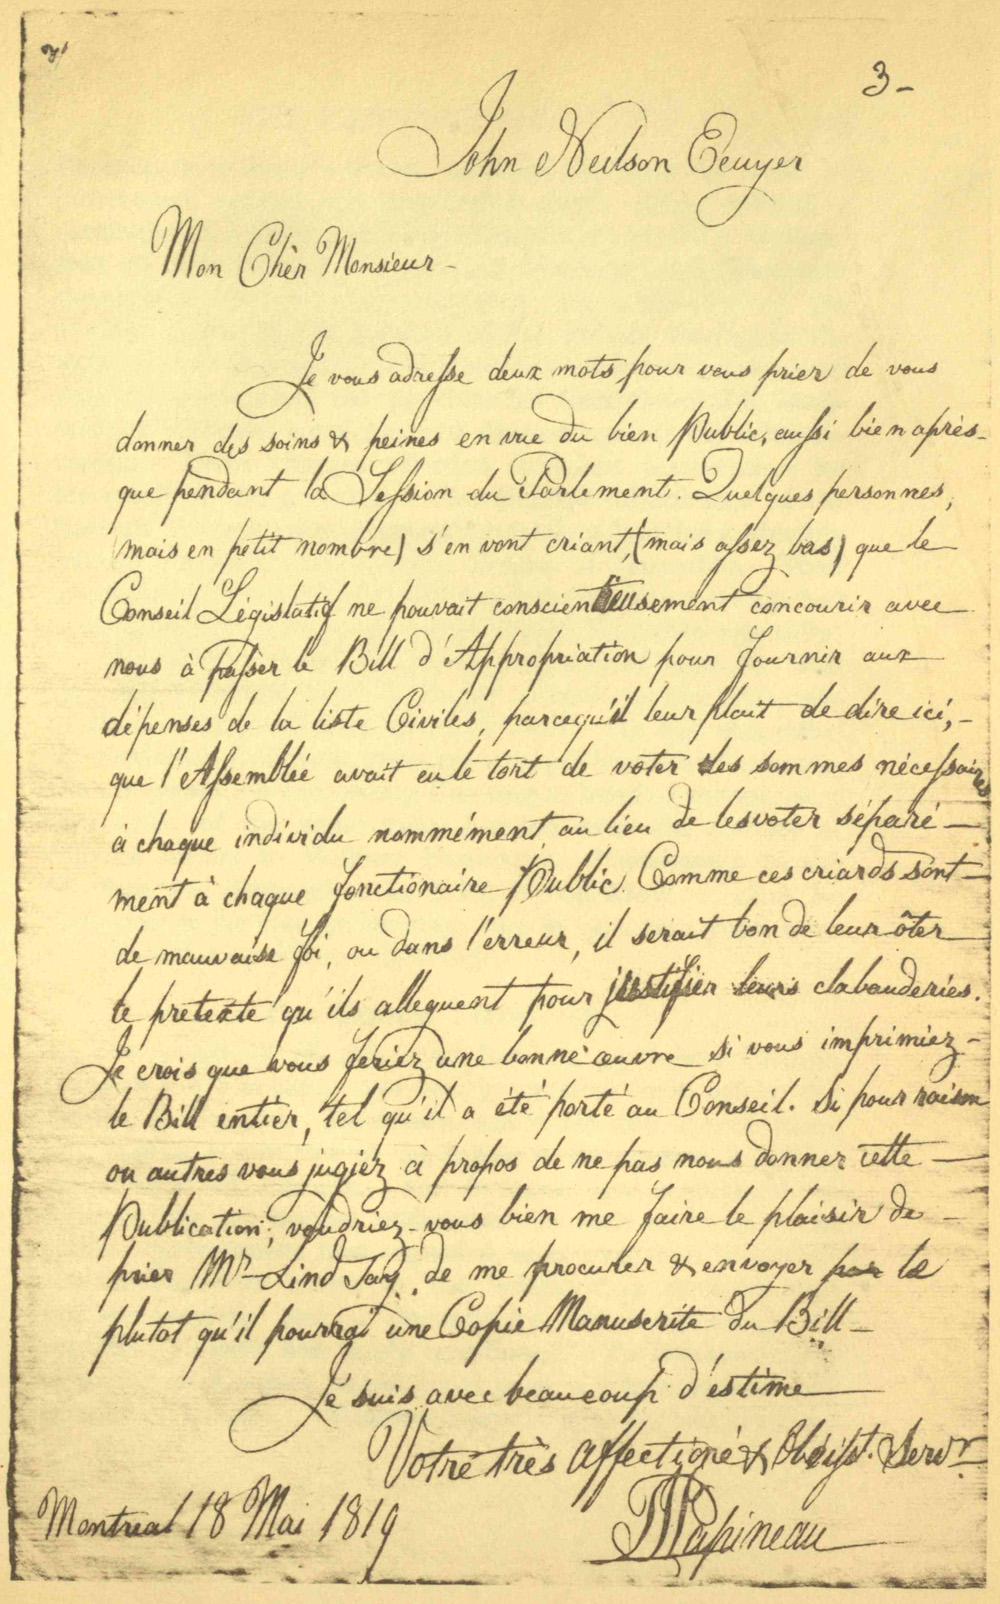 3-
John Neilson Ecuyer
Mon Chèr Monsieur-
Je vous adresse deux mots pour vous prier de vous
donner des soins & peines en vue du bien Public, aussi bien après-
que pendant la Session du Parlement. Quelques personnes,
(mais en petit nombre) s'en vont criant, (mais assez bas) que le
Conseil Législatif ne pouvait conscientieusement concourir avec
nous à passer le Bill d'Appropriation pour fournir aux
dépenses de la liste Civiles, parcequ'il leur plait de dire ici,-
que l'Assemblée avait eu le tort de voter des sommes nécessaires
à chaque individu nommément au lieu de les voter séparé-
ment à chaque fonctionaire Public. Comme ces criards sont-
de mauvaise foi, ou dans l'erreur, il serait bon de leur ôter
le pretexte qu'ils alleguent pour justifier leurs clabauderies.
Je crois que vous feriez une bonne œuvre si vous imprimiez-
le Bill entier, tel qu'il a été porté au Conseil. Si pour raison
ou autres vous jugiez à propos de ne pas nous donner cette-
Publication; voudriez-vous bien me faire le plaisir de-
prier Mr Lindsay, de me procurer & envoyer le
plutot qu'il pourra une Copie Manuscrite du Bill-
Je suis avec beaucoup d'estime
Votre très affectioné & Obéisst. Servr
Montreal 18 Mai 1819
Papineau